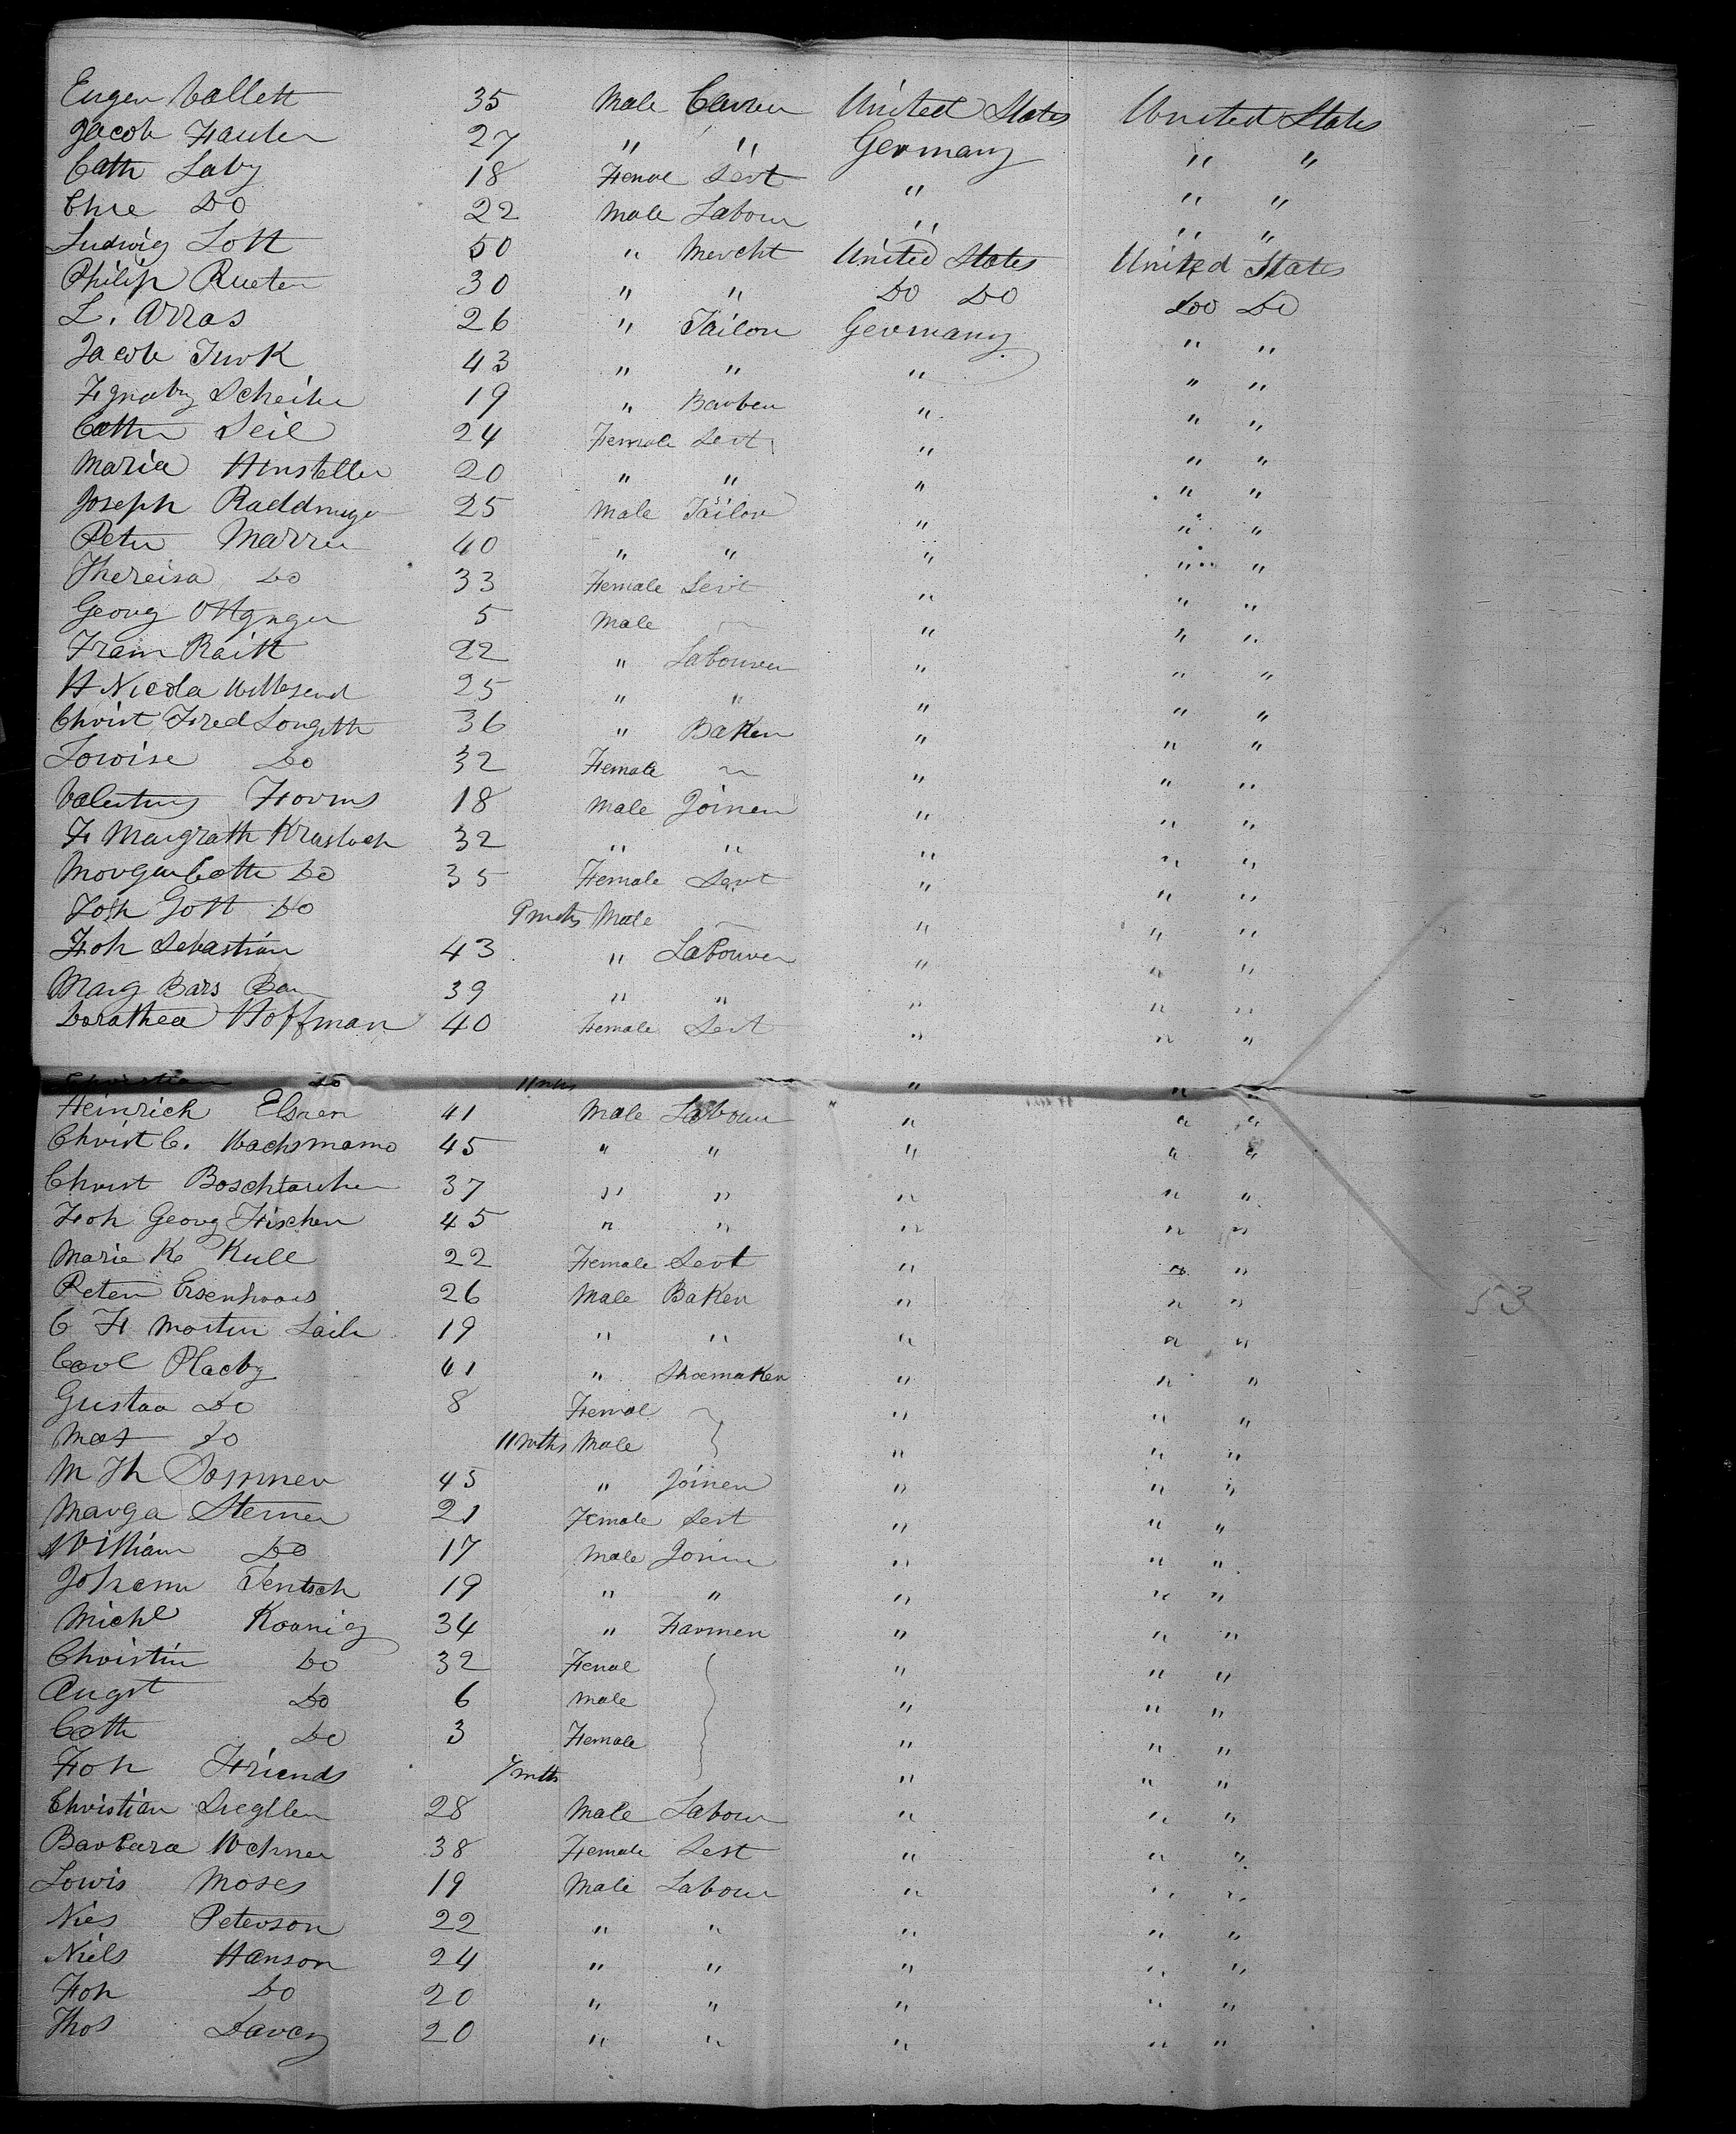 Eugen Vallett 35 Male Carver United States United States
Jacob Hauter 27 " " Germany " "
Cath Laby 18 Femal Servt " " "
Chre Do 22 Male Labour " " "
Ludwig Lott 50 " Mercht United States United States
Philip Rueter 30 " " Do Do Do Do
L. Arras 26 " Tailor Germany " "
Jacob Turk 43 " " " " "
Scheibe 19 " Barber " " "
Cath Seil 24 Female Servt " " "
Maria 20 " " " " "
Joseph 25 Male Tailor " " "
Peter Marrer 40 " " " " "
Thereisa Do 33 Female Servt " " "
Georg 5 Male ~ " " "
Raitt 22 " Labourer " " "
H Nicola 25 " " " " "
Christ Fred Longtth 36 " Baker " " "
Lowise Do 32 Female ~ " " "
Horms 18 Male Joiner " " "
F Margrath 32 " " " " "
Do 35 Female Servt " " "
Joh Gott Do 9 mths Male ~ " " "
Joh Sebastian 43 " Labourer " " "
Marg Bars 39 " " " " "
Dorathea Hoffman 40 Female Servt " " "
Christian Do 11 mths " " "
Heinrich 41 Male Labour " " "
Christ C. Wachsmamo 45 " " " " "
Christ 37 " " " " "
Joh Georg Fischer 45 " " " " "
Marie K Kull 22 Female Servt " " "
Peter 26 Male Baker " " "
C F Martin 19 " " " " "
Carl Placby 41 " Shoemaker " " "
Gustaa Do 8 Femal ~ " " "
Max Do 11 mths Male " " "
M Th Sommer 45 " Joiner " " "
Marga Sterner 21 Female Servt " " "
William Do 17 Male Joiner " " "
Johann Jentsch 19 " " " " "
Michl Koenig 34 " Farmer " " "
Christin Do 32 Femal " " "
Augst Do 6 Male " " "
Cath Do 3 Female " " "
Joh Friends mths " " "
Christian 28 Male Labour " " "
Barbara Wehner 38 Female Servt " " "
Lowis Moses 19 Male Labour " " "
53
Nies Peterson 22 " " " " "
Niels Hanson 24 " " " " "
Joh Do 20 " " " " "
Thos Davey 20 " " " " "